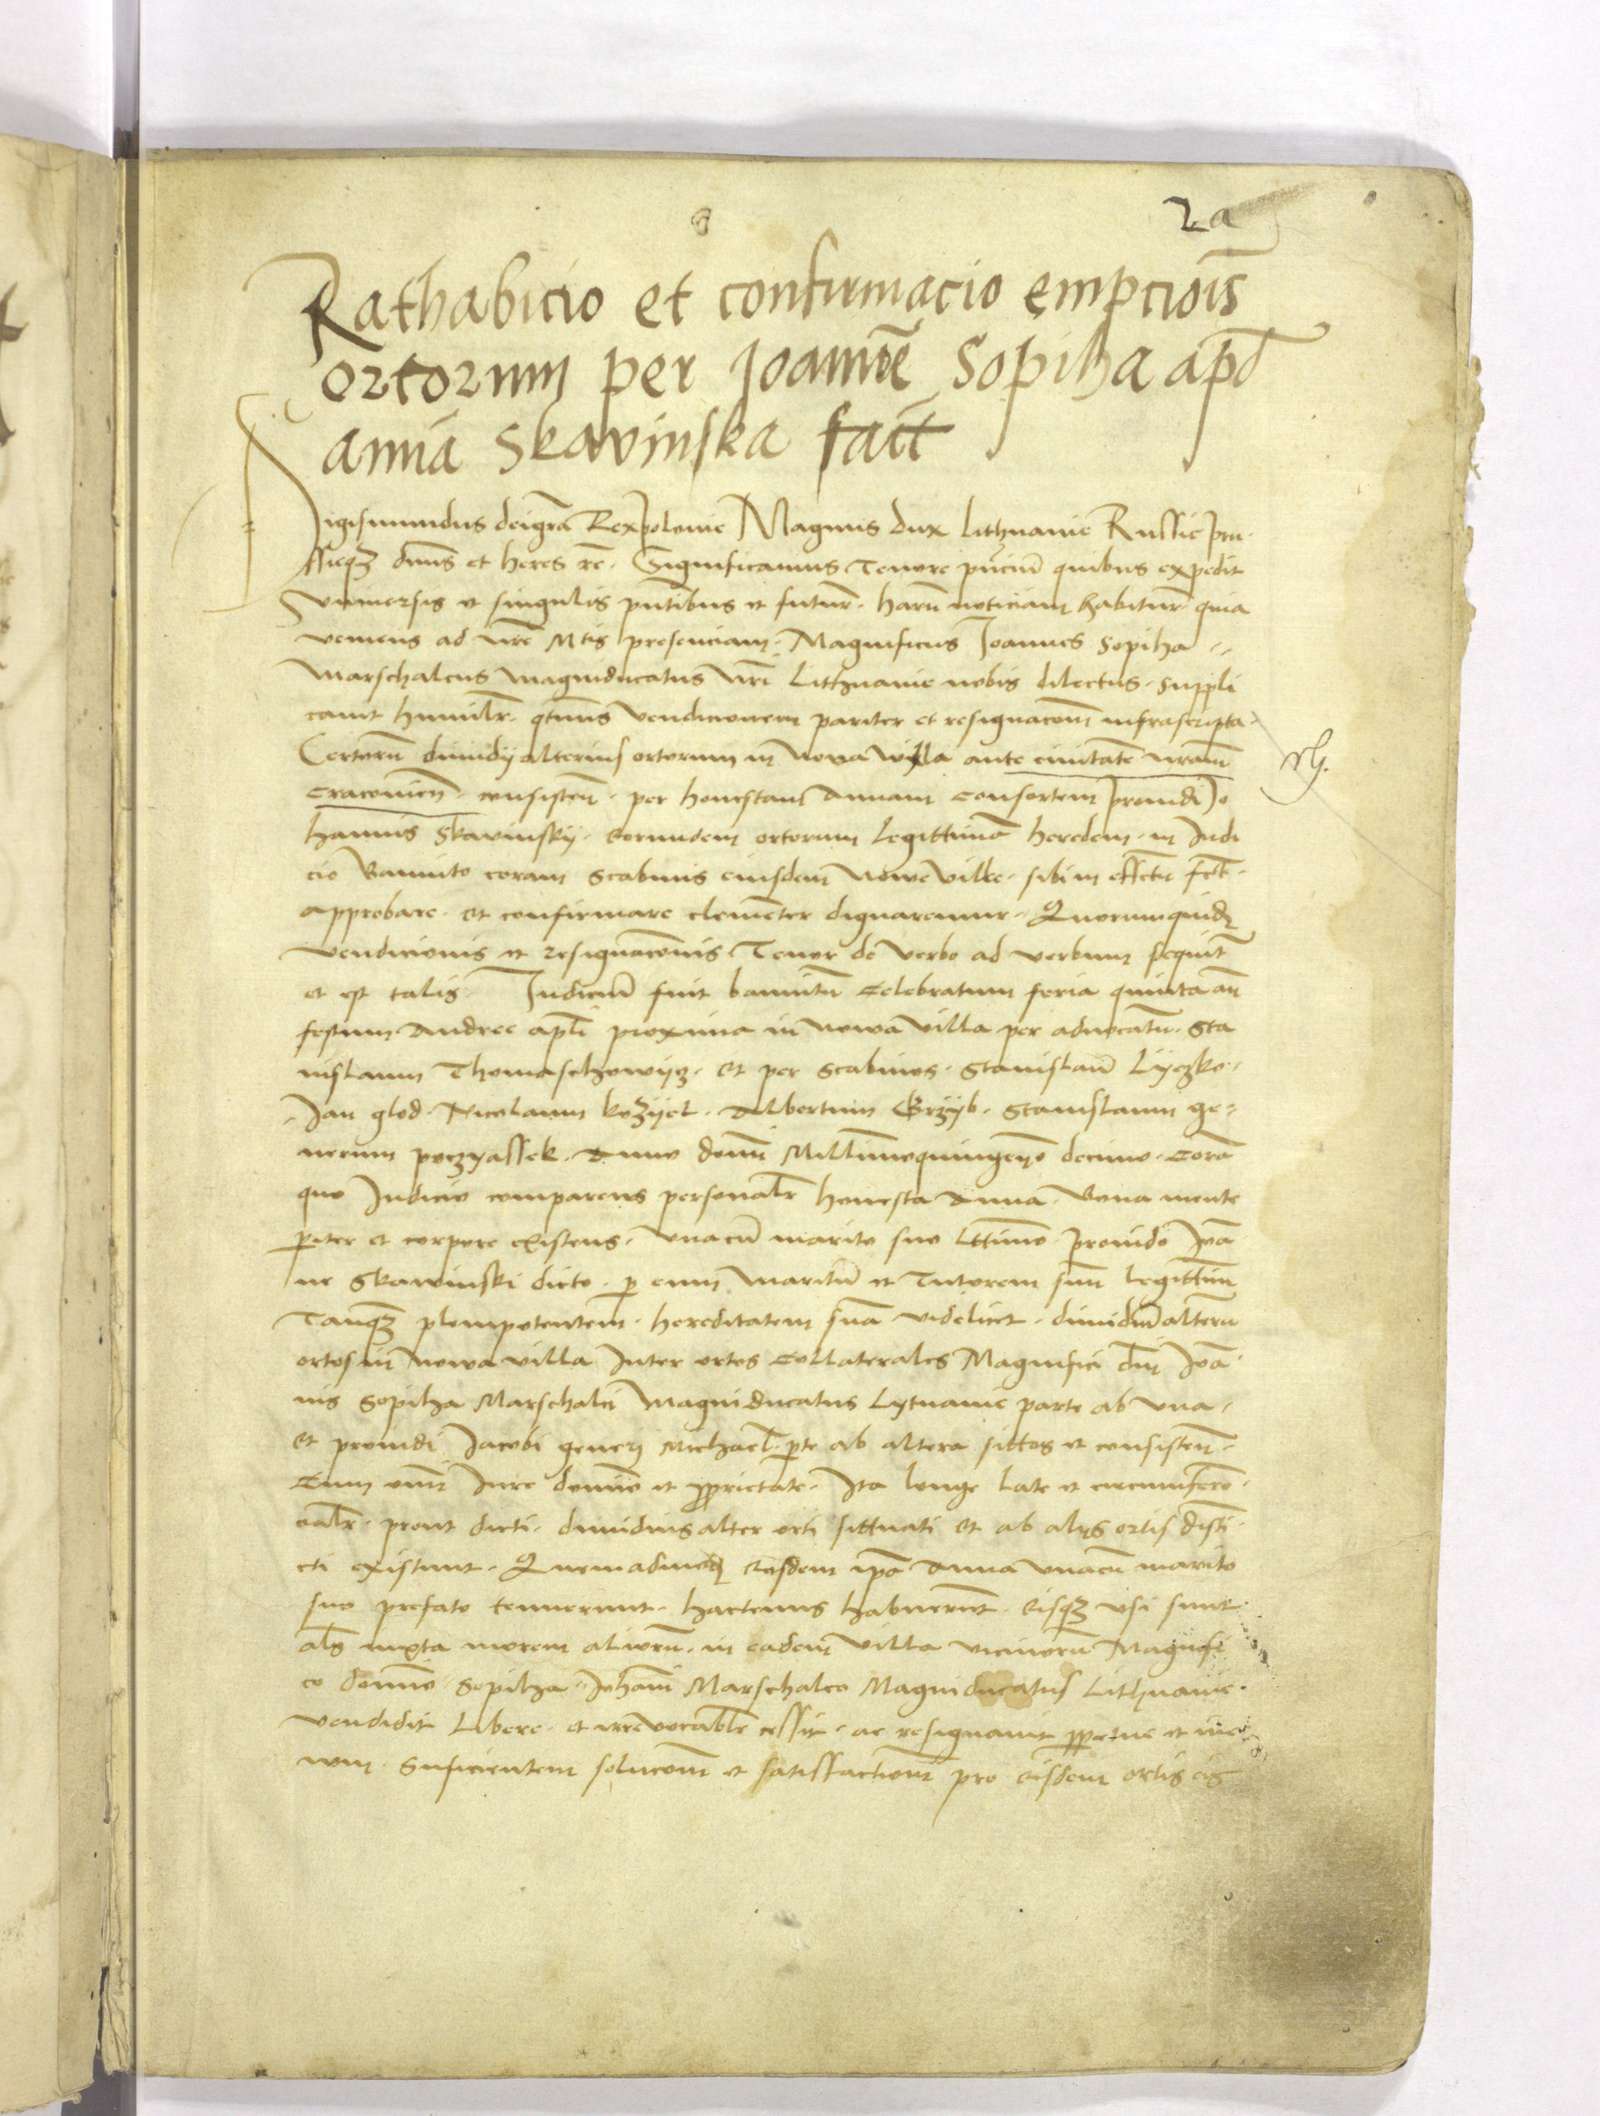 2a
Rathabicio et confirmacio empciois
ortorum per Joannē Sopiha apd
annā Skavinska fact
Sigismundus dei grā Rex polonie Magnus dux Lithuanie Russie pru-
ssieq3 dnus et heres rc. Significamus Tenore pnciu quibus expedit
vniuersis et singulis pntibus et futur. harū noticiam habitur. quia
veniens ad nrē Mtis presenciam. Magnificus Joannes Sopiha
Marschalcus magniducatus nri Lithuanie nobis dilectus. suppli
cauit humilr. qtinus vendicionem pariter et resignacom infrascripta
Certorū dimidij alterius ortorum in Noua villa ante ciuitatē nram
Cracouien. consisten. per honestam Annam Consortem prouidi Jo
hannis Skavinsky. Eorundem ortorum legittimā heredem. in Judi
cio Bannito coram Scabinis eiusdem Nowe ville. sibi in effectu fct.
approbare. et confirmare clementer dignaremur. Quorumquidē
vendicionis et resignacionis Tenor de verbo ad verbum sequit
et est talis. Judiciū fuit bannitū Celebratum feria quinta an
festum Andree apli proxima in nowa villa per aduocatū. Sta
nislaum Thomaschowijcz. et per Scabinos. Stanislaū Lyczko.
Jan glod. Nicolaum kozijel. Albertum Grzyb. Stanislaum ge-
nerum poczyassek. Anno domi Millimoquingeno decimo. Corā
quo Judicio comparens personalr honesta Anna. Bona mente
pariter et corpore existens. vnacū marito suo lttimo prouido Joā
ne Skawinski dicto. p eum maritū et Tutorem suū legittimū
Tanq3 plenipotentem. hereditatem suā videlicet. dimidiū alterū
ortos in nowa villa Inter ortos Collaterales Magnifici dni Joā
nis Sopiha Marschalci Magniducatus Lytuanie parte ab vna.
et prouidi Jacobi generi Michael. pte ab altera sittos et consisten.
Cum omi Jure domio et pprietate. Jta longe late et circumferen
cialr. prout dicti. dimidius alter orti sittuati et ab alijs ortis disti
cti existunt. Quemadmodū eosdem ipa Anna vnacū marito
suo prefato tenuerunt. hactenus habuerūt. eisq3 vsi sunt
als iuxta morem aliorū. in eadem villa vicinorū Magnifi
co domio. Sopiha. Johanni Marschalco Magniducatus Lithuanie.
vendidit libere. et irreuocablr cessit. ac resignauit ppetue et in e
uum. Suficientem solucom et satisfactionē pro eisdem ortis eis